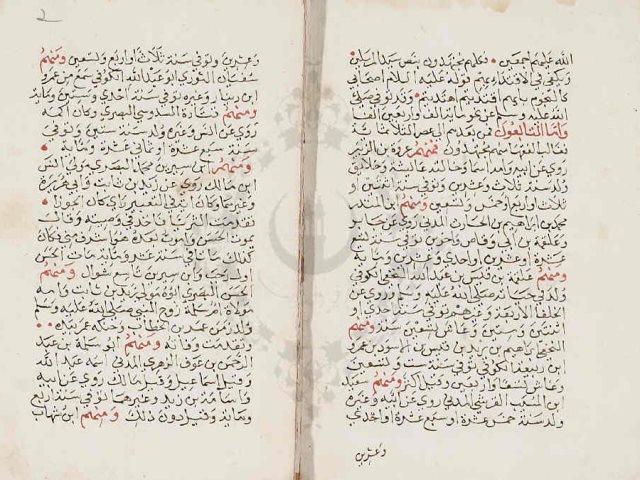 الله عليهم اجمعين وكلهم مجتهدون بنص سيد المرسلين
ويكفي في الاقتداء بهم قوله عليه السلام اصحابي
كالنجوم بايهم اقتديتم اهتديتم وقد توفي صلى
الله عليه وسلم عن نحو مائة الف واربعين الفا
واما التابعون فمن بعدهم الى عصر الثلاثمائة
فغالب الفقهاء منهم مجتهدون فمنهم عروة بن الزبير
روى عن ابيه وامه اسما وخالته عائشة وخلائق
ولد سنة ثلاث وعشرين وتوفي سنة اثنتين او
ثلاث او اربع او خمس وتسعين ومنهم
محمد بن ابراهيم بن الحارث المدني روى عن جابر
وعلقمة بن ابي وقاص واخرين توفي سنة تسع
عشرة او عشرين او احدى وعشرين ومائة
ومنهم علقمة بن قيس بن عبد الله النخعي الكوفي
ولد في حياته صلى الله عليه وسلم روى عن
الخلفا الاربعة وغيرهم توفي سنة احدى او
اثنتين وستين وعاش تسعين سنة ومنهم
النخعي ابراهيم بن يزيد بن قيس بن الاسود بن عمرو
ابن ربيعة الكوفي توفي سنة ست وتسعين
وعاش تسعا واربعين وقيل اكثر ومنهم سعيد
ابن المسيب القرشي المدني روى عن ابيه وغيره
ولد سنة خمس عشرة او سبع عشرة او احدى
وعشرين
وعشرين وتوفي سنة ثلاث او اربع وتسعين ومنهم
سفيان الثوري ابو عبد الله الكوفي سمع من عمرو
ابن دينار وغيره توفي سنة احدى وستين ومائة
ومنهم قتادة السدوسي البصري وكان اكمه
روى عن انس وغيره ولد سنة ستين وتوفي
سنة سبع عشرة او ثماني عشرة ومائة
ومنهم ابن سيرين محمد البصري مولى انس
ابن مالك روى عن زيد بن ثابت وابي هريرة
وغيرهما وكان اية في التعبير راى كان الجوزا
تقدمت الثريا فاخذ في وصيته وقال
يموت الحسن واموت بعده هو اشرف مني فكان
كذلك مات في سنة عشرة ومائة مات الحسن
اول رجب وابن سيرين تاسع شوال ومنهم
الحسن البصري ابوه مولى زيد بن ثابت وامه
مولاة ام سلمة زوج النبي صلى الله عليه وسلم
ولد زمن عمر بن الخطاب وحنكه عمر بيده
وتقدمت وفاته ومنهم ابو سلمة بن عبد
الرحمن بن عوف الزهري المدني اسمه عبد الله
وقيل اسماعيل وقيل مالك روى عن ابيه
واسامة بن زيد وغيرهما توفي سنة اربع
ومائة وقيل دون ذلك ومنهم ابن شهاب